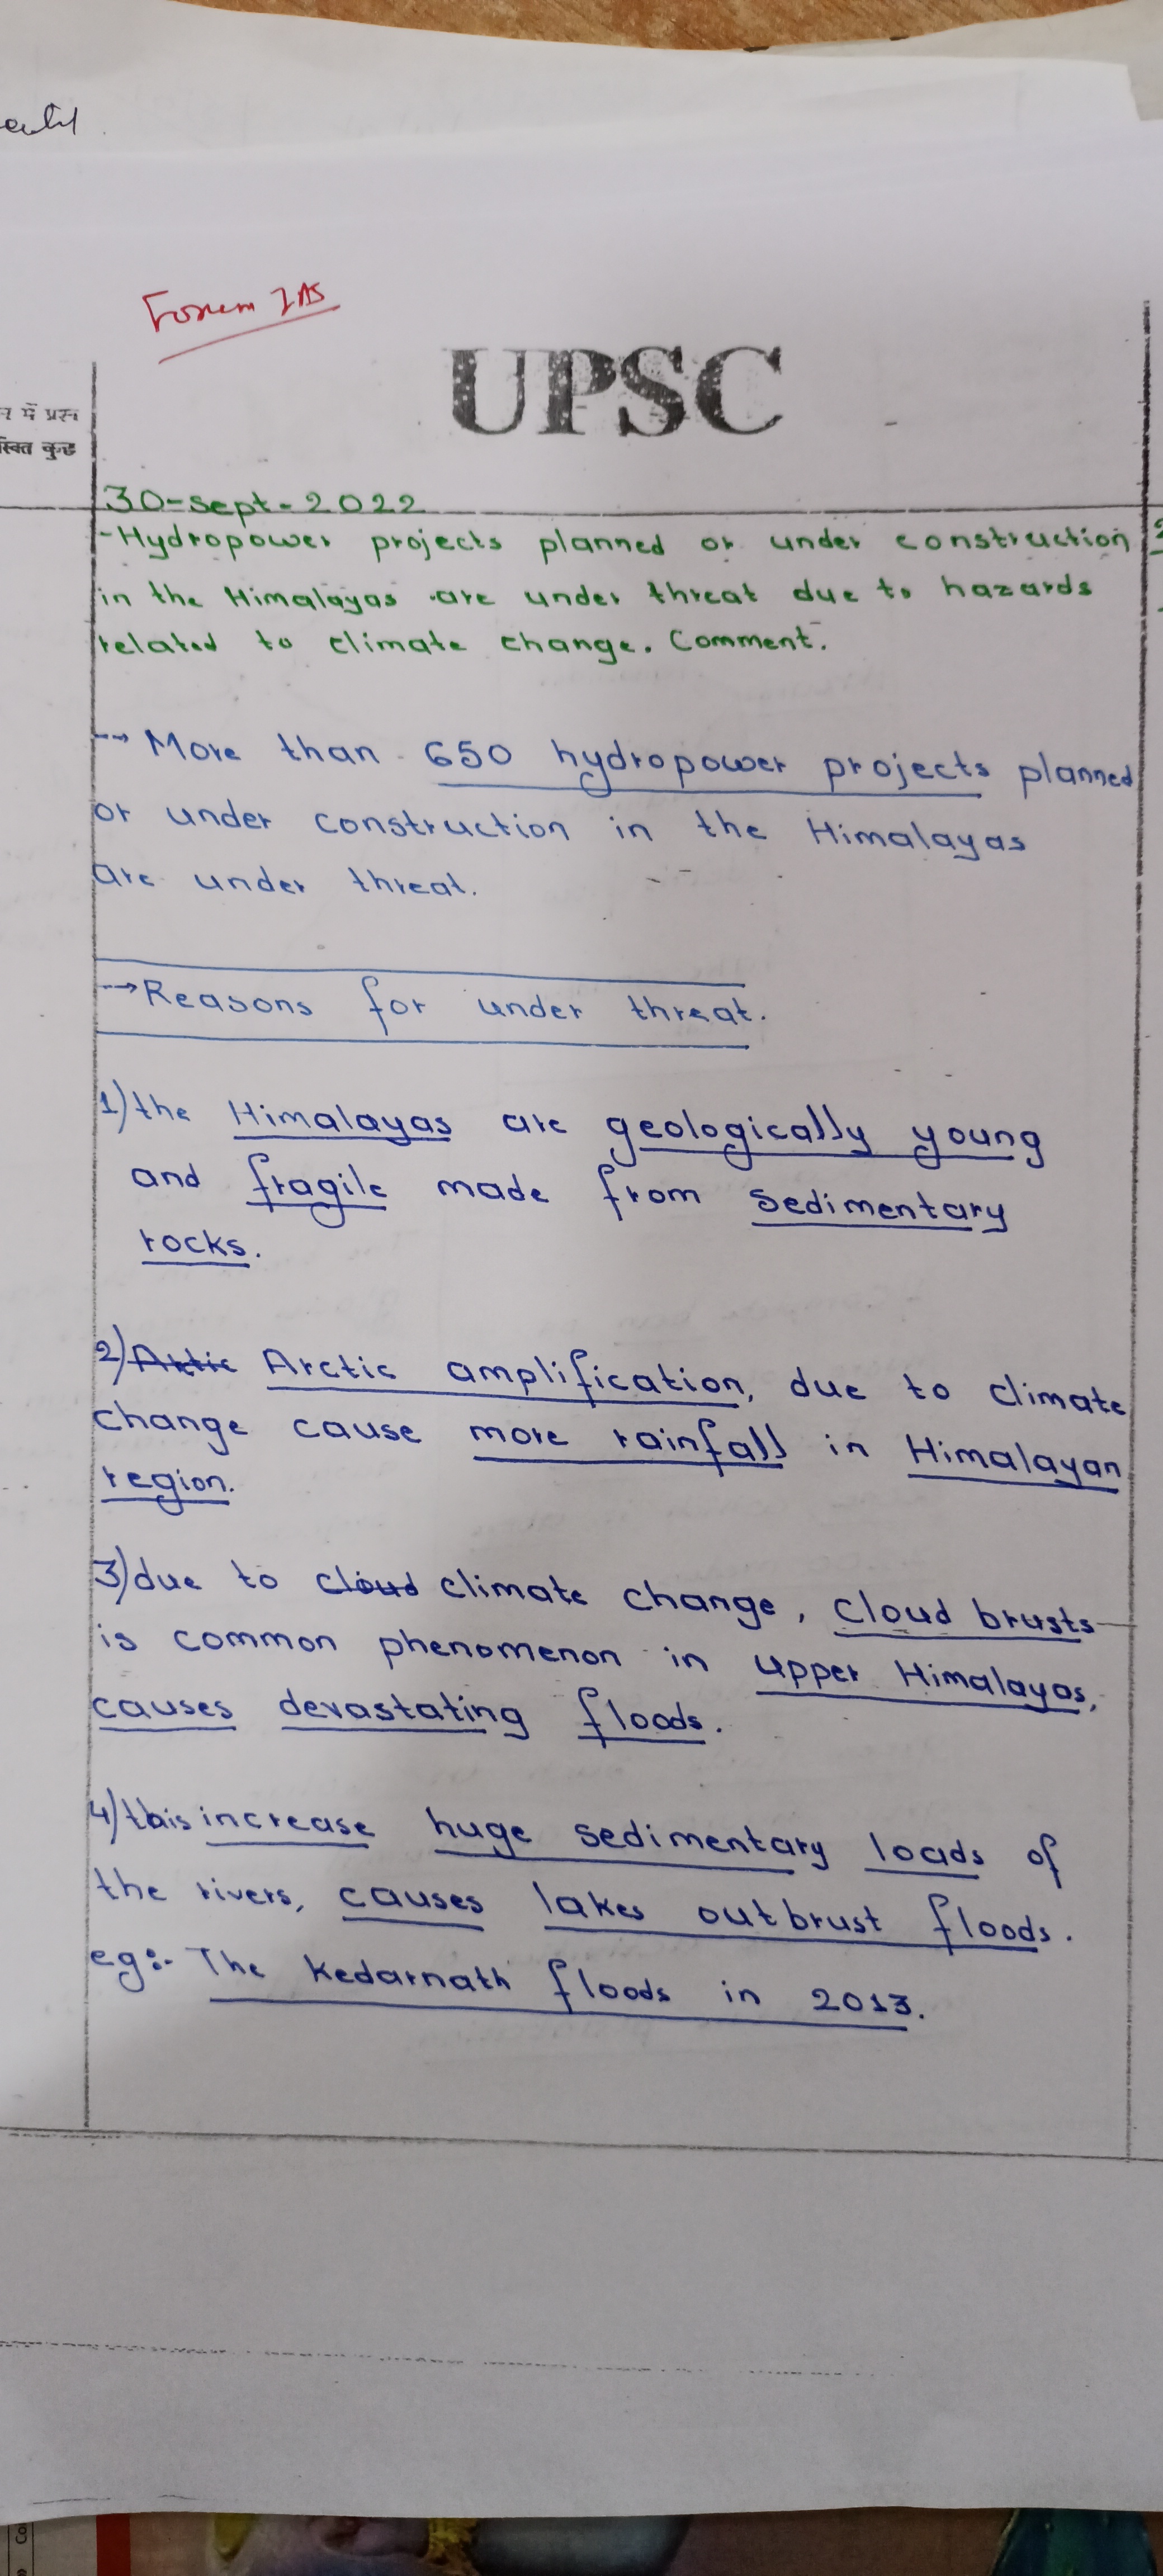 Forum IAS
UPSC
में प्रश्न
30-sept-2022
-Hydropower projects planned or under construction
in the Himalayas are under threat due to hazards
related to climate change. Comment.
--→ More than 650 hydropower projects planned
or under construction in the Himalayas
are under threat.
→Reasons for under threat.
1) the Himalayas are geologically young
and fragile made from sedimentary
rocks.
2) Arctic amplification, due to climate
change cause more rainfall in Himalayan
region.
3) due to cloud climate change, cloud brusts
is common phenomenon in upper Himalayas,
causes devastating floods.
4) this increase huge sedimentary loads of
the rivers, causes lakes outbrust floods.
eg:- The Kedarnath floods in 2013.